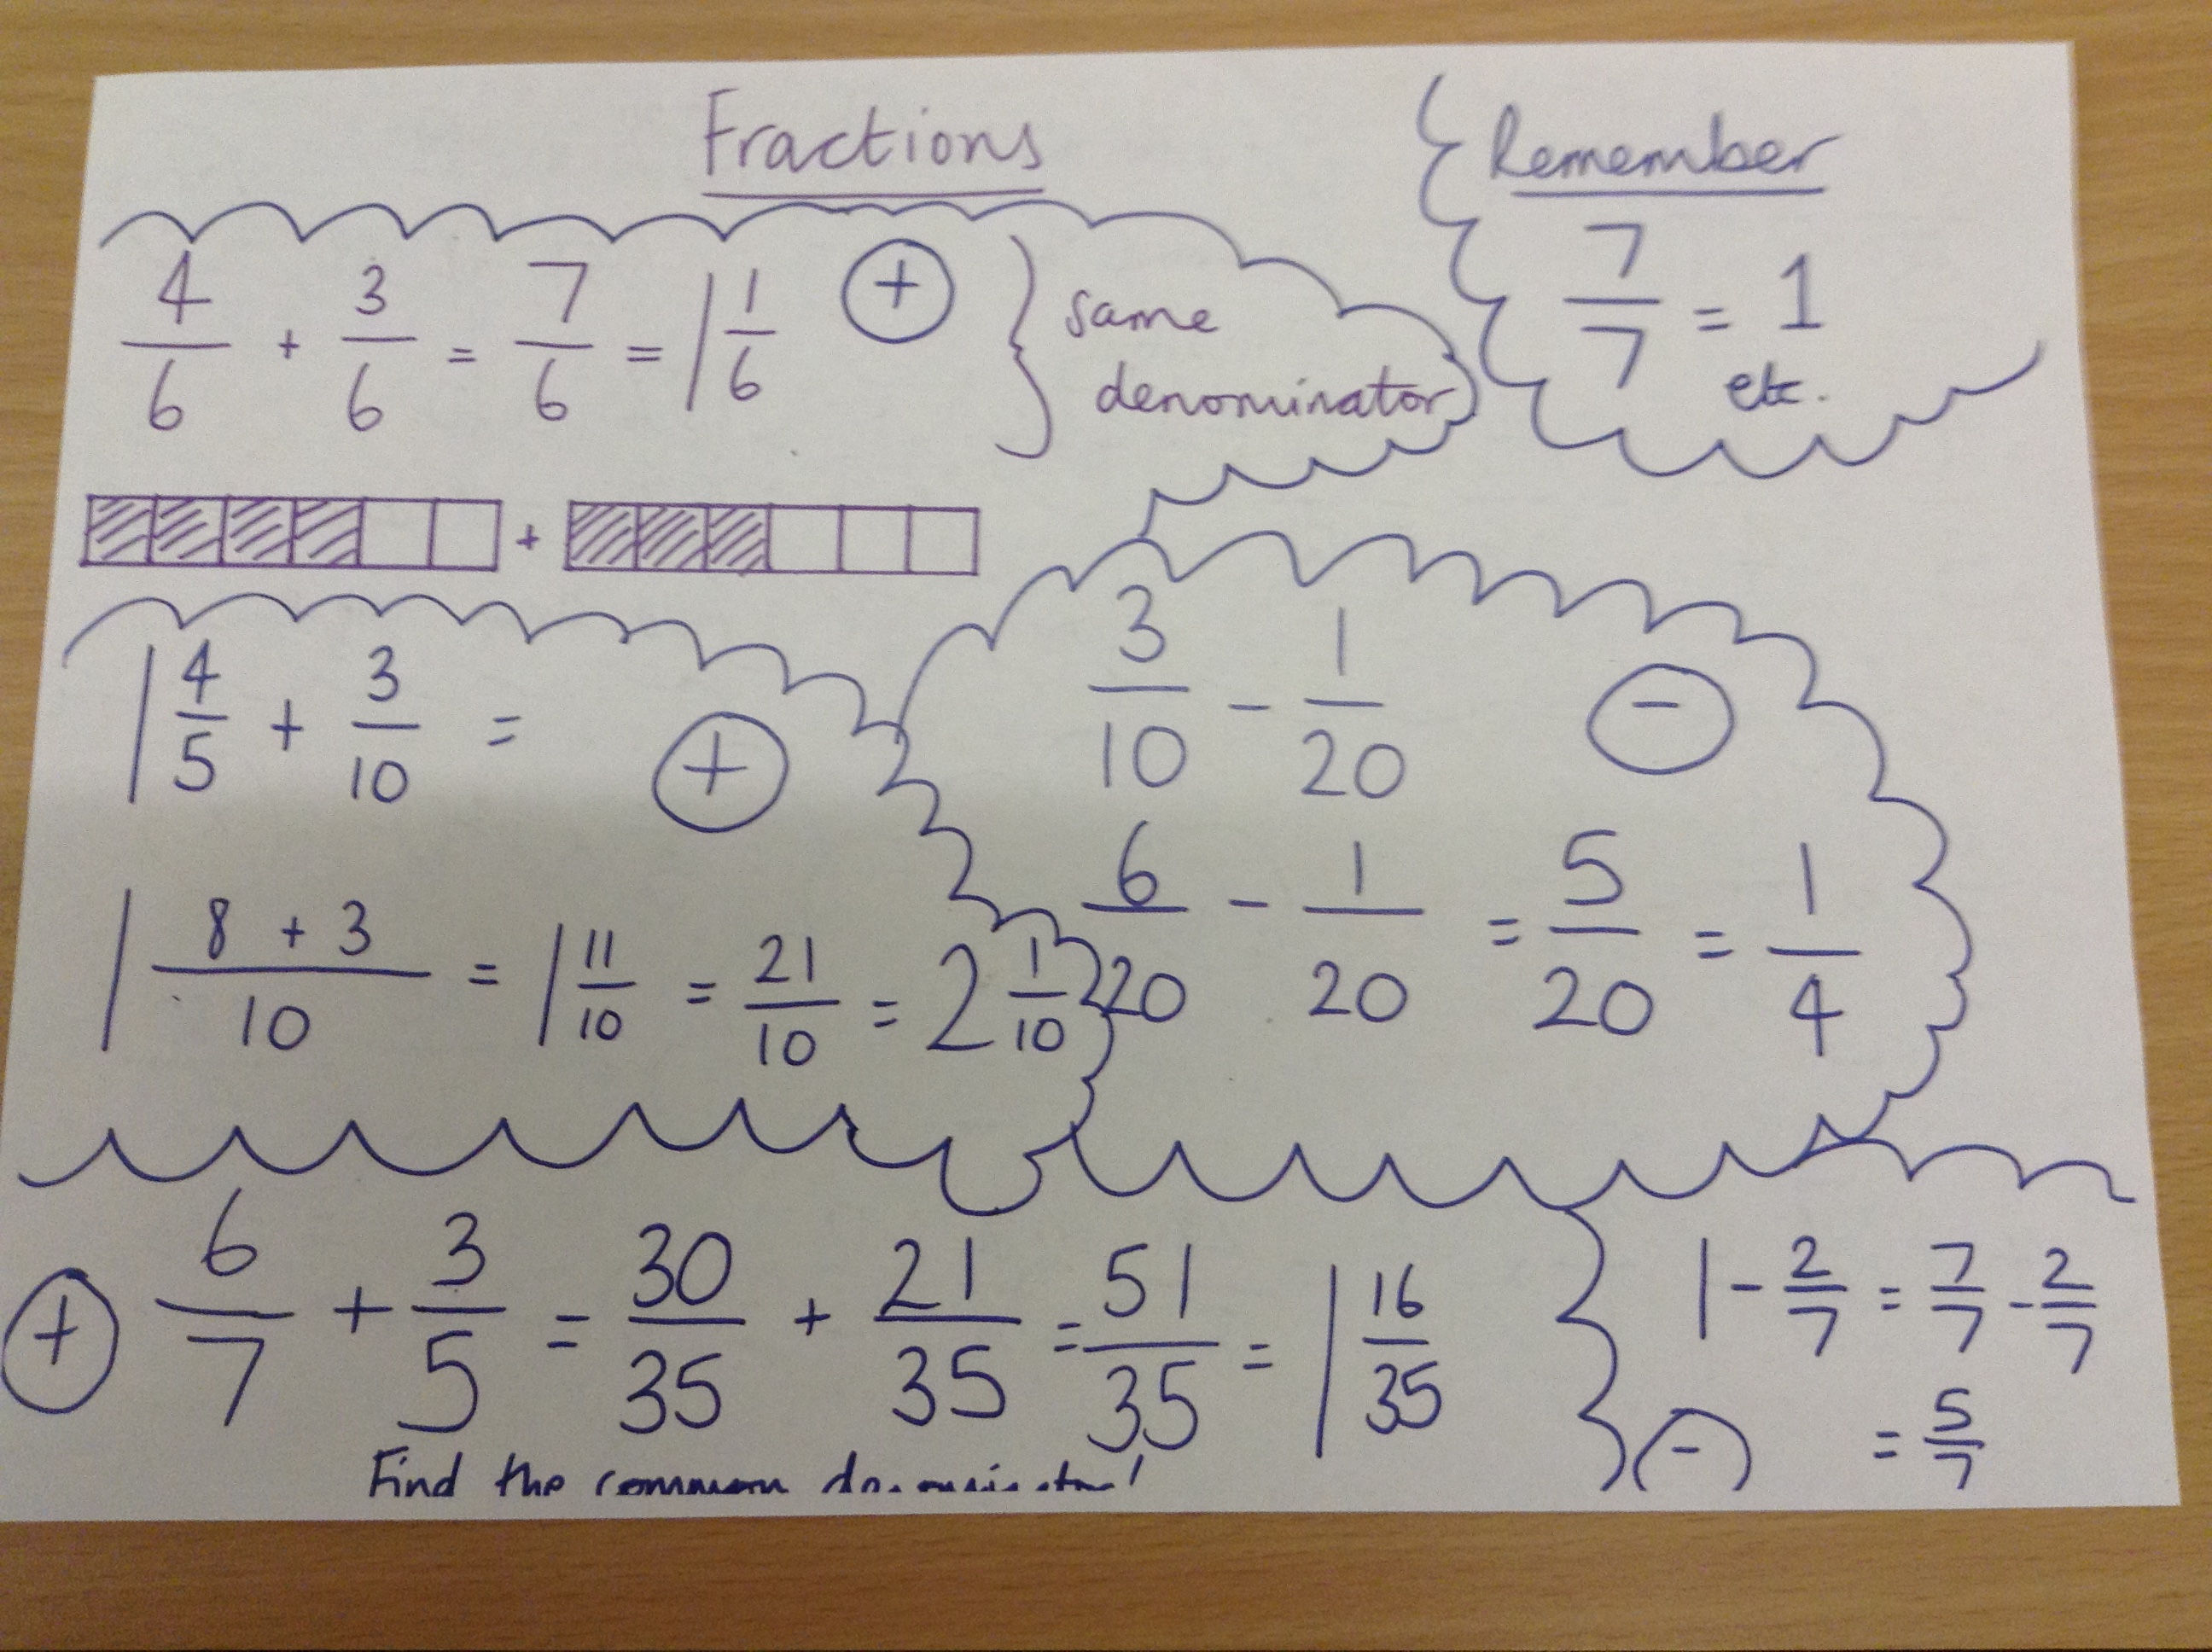 Fractions
4/6 + 3/6 = 7/6 = 1 1/6
+
same
denominator
Remember
7/7 = 1
etc.
+
1 4/5 + 3/10 =
+
1 8 + 3/10 = 1 11/10 = 21/10 = 2 1/10
3/10 - 1/20
-
6/20 - 1/20 = 5/20 = 1/4
+ 6/7 + 3/5 = 30/35 + 21/35 = 51/35 = 1 16/35
Find the common denominator!
1 - 2/7 = 7/7 - 2/7
- = 5/7